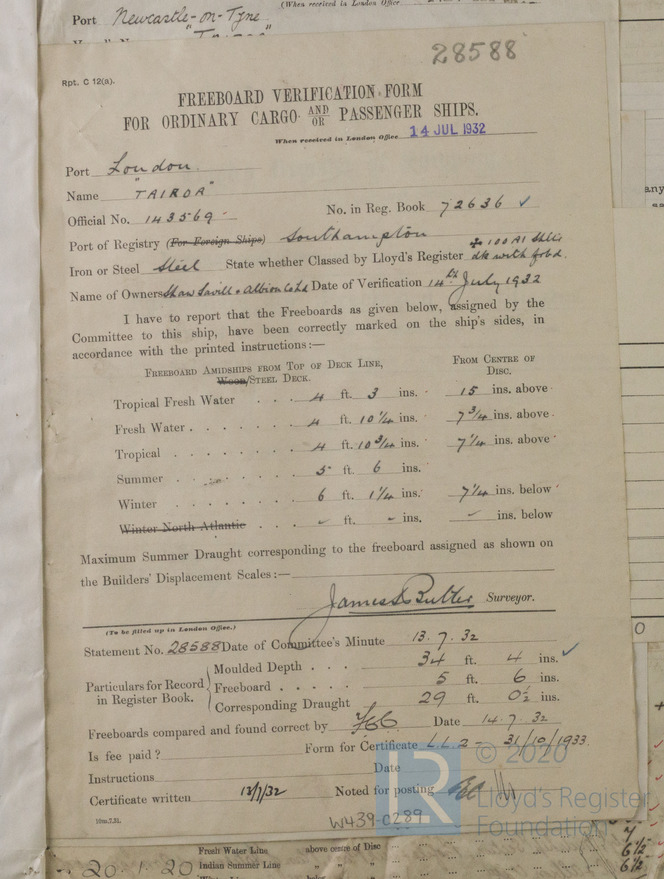 (When received in London Office
Port Newcastle-on-Tyne
28588
Rpt. C 12(a).
FREEBOARD VERIFICATION FORM
FOR ORDINARY CARGO AND/OR PASSENGER SHIPS.
When received in London Office 14 JUL 1932
Port London.
Name "TAIROA"
Official No. 143569 No. in Reg. Book 72636 ✓
Port of Registry (For Foreign Ships) Southampton
Iron or Steel Steel State whether Classed by Lloyd's Register ✠ 100 A1 Shltr dk with fbd.
Name of Owners Shaw Savill & Albion Co Ltd Date of Verification 14th July 1932
I have to report that the Freeboards as given below, assigned by the
Committee to this ship, have been correctly marked on the ship's sides, in
accordance with the printed instructions:—
FREEBOARD AMIDSHIPS FROM TOP OF DECK LINE, FROM CENTRE OF
WOOD/STEEL DECK. DISC.
Tropical Fresh Water . . . 4 ft. 3 ins. 15 ins. above
Fresh Water . . . . . . 4 ft. 10 1/4 ins. 7 3/4 ins. above
Tropical . . . . . . . 4 ft. 10 3/4 ins. 7 1/4 ins. above
Summer . . . . . . . 5 ft. 6 ins.
Winter . . . . . . . 6 ft. 1 1/4 ins. 7 1/4 ins. below
Winter North Atlantic . . . - ft. - ins. - ins. below
Maximum Summer Draught corresponding to the freeboard assigned as shown on
the Builders' Displacement Scales:—
James Butler Surveyor.
(To be filled up in London Office.)
Statement No. 28588 Date of Committee's Minute 13.7.32
Particulars for Record in Register Book.
Moulded Depth . . . 34 ft. 4 ins. ✓
Freeboard . . . . . 5 ft. 6 ins.
Corresponding Draught 29 ft. 0½ ins.
Freeboards compared and found correct by Date 14.7.32
Is fee paid? Form for Certificate LL.2 - 31/10/1933.
Instructions Date
Certificate written 13/7/32 Noted for posting
10m.7.31.
W439-0289
LR © 2020
Lloyd's Register
Foundation
20.1.20
Fresh Water Line above centre of Disc
Indian Summer Line " " "
6½
6½